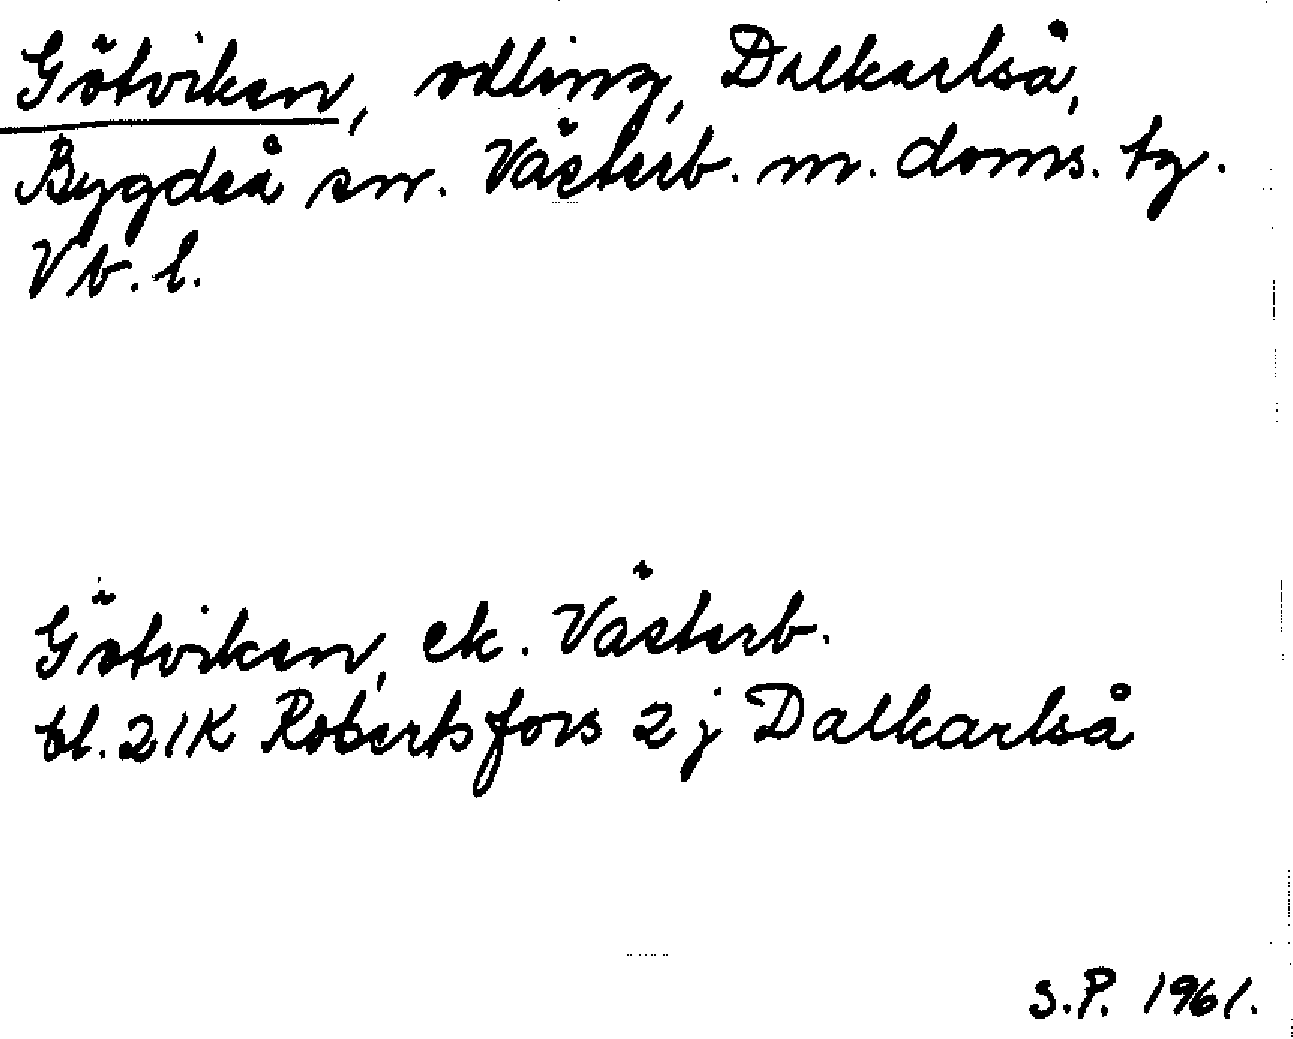 Götviken, odling, Dalkarlså,
Bygdeå sn. Västerb. m. doms. tg.
Vb. l.
Götviken, ek. Västerb.
bl. 21K Robertsfors 2j Dalkarlså
S.P. 1961.